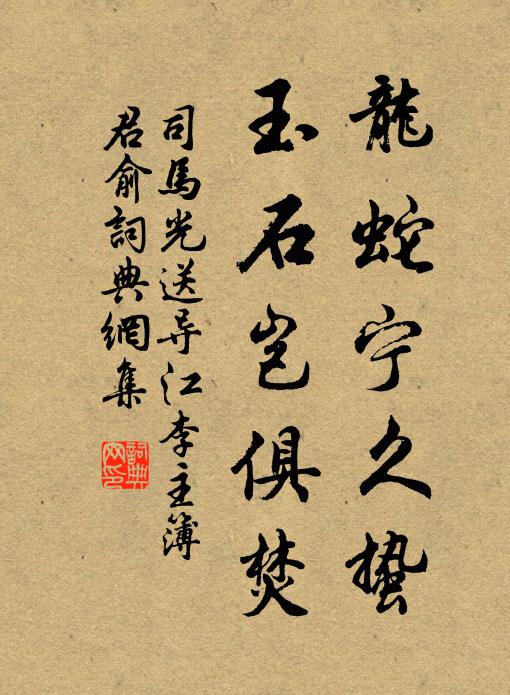 龍蛇宁久蛰
玉石岂俱焚
司馬光送导江李主簿
君俞詞典網集
詞典网印